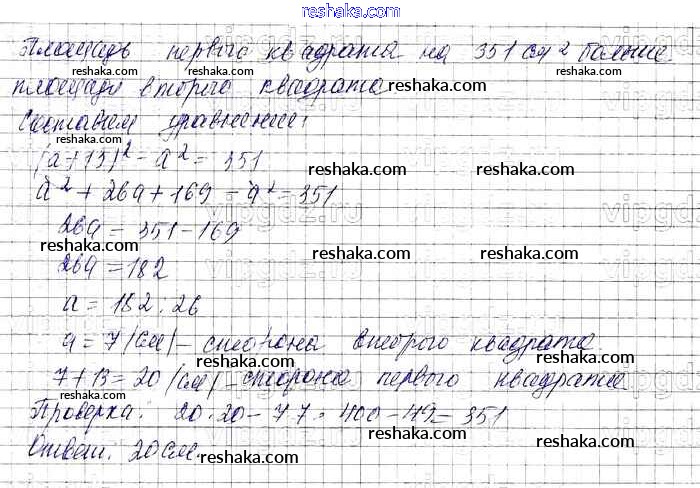 reshaka.com
Площадь первого квадрата на 351 см2 больше
reshaka.com reshaka.com reshaka.com
площади второго квадрата
Составим уравнение:
reshaka.com reshaka.com reshaka.com
(a+13)² - a² = 351
reshaka.com reshaka.com
a² + 26a + 169 - a² = 351
vipgdz.ru
26a = 351 - 169
reshaka.com reshaka.com reshaka.com
26a = 182
a = 182 : 26
reshaka.com reshaka.com reshaka.com
a = 7 (см) - сторона второго квадрата
reshaka.com reshaka.com reshaka.com
7 + 13 = 20 (см) - сторона первого квадрата
Проверка: 20·20 - 7·7 = 400 - 49 = 351
reshaka.com reshaka.com reshaka.com
Ответ: 20 см.
reshaka.com reshaka.com reshaka.com